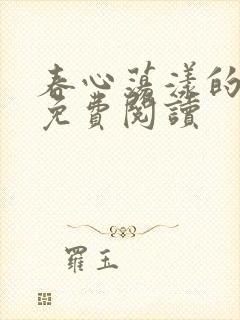 春心蕩漾的
免費閱讀
羅玉